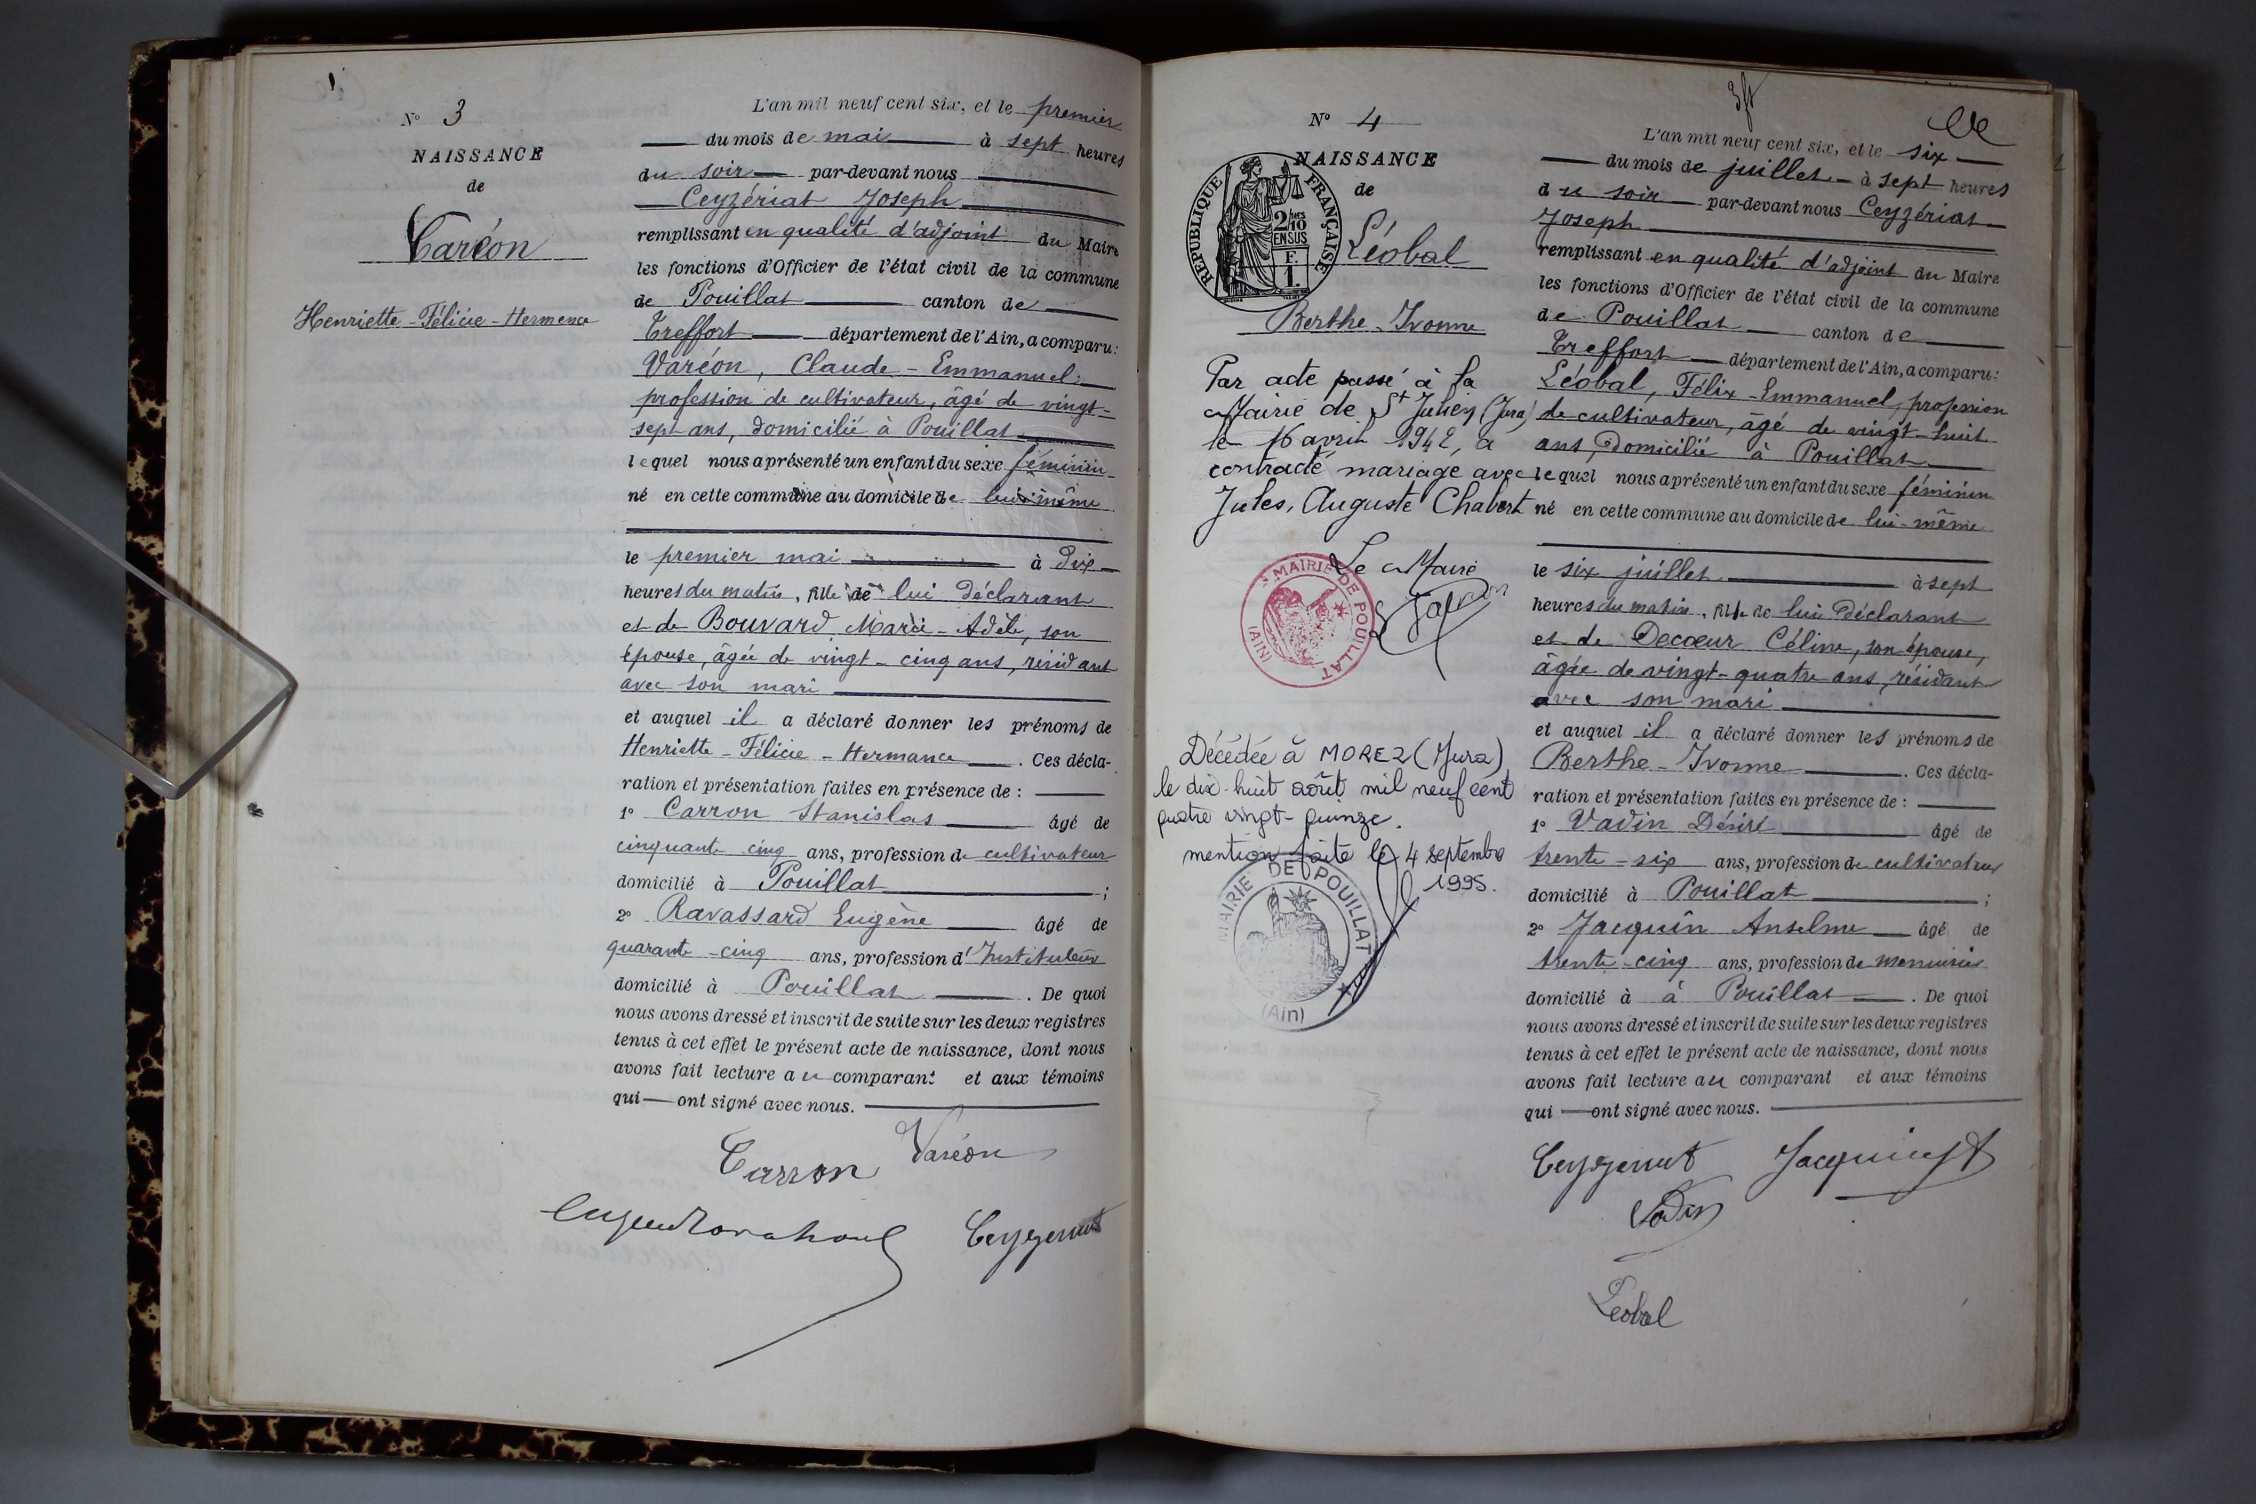 N° 3
NAISSANCE
de
Varéon
Henriette - Félicie - Hermence
L'an mil neuf cent six, et le premier
du mois de mai à sept heures
du soir par-devant nous
Ceyzériat Joseph
remplissant en qualité d'adjoint du Maire
les fonctions d'Officier de l'état civil de la commune
de Pouillat canton de
Treffort département de l'Ain, a comparu:
Varéon, Claude - Emmanuel,
profession de cultivateur, âgé de vingt-
sept ans, domicilié à Pouillat
lequel nous a présenté un enfant du sexe féminin
né en cette commune au domicile de lui-même
le premier mai à dix
heures du matin, fille de lui déclarant
et de Bouvard Marie - Adèle, son
épouse, âgée de vingt-cinq ans, résidant
avec son mari
et auquel il a déclaré donner les prénoms de
Henriette - Félicie - Hermance . Ces décla-
ration et présentation faites en présence de :
1° Carron Stanislas âgé de
cinquante cinq ans, profession de cultivateur
domicilié à Pouillat ;
2° Ravassard Eugène âgé de
quarante-cinq ans, profession d'Instituteur
domicilié à Pouillat . De quoi
nous avons dressé et inscrit de suite sur les deux registres
tenus à cet effet le présent acte de naissance, dont nous
avons fait lecture au comparant et aux témoins
qui ont signé avec nous.
Carron Varéon
Ceyzeriat
N° 4
NAISSANCE
de
REPUBLIQUE FRANÇAISE
2/10 EN SUS
F. 1.
Léobal
Berthe - Yvonne
Par acte passé à la
Mairie de St Julien (Jura)
le 16 avril 1942, a
contracté mariage avec
Jules, Auguste Chabert
Le Maire
MAIRIE DE POUILLAT
(AIN)
Décédée à MOREZ (Jura)
le dix-huit août mil neuf cent
quatre vingt-quinze.
mention faite le 4 septembre
1995.
MAIRIE DE POUILLAT
(Ain)
L'an mil neuf cent six, et le six
du mois de juillet à sept heures
du soir par-devant nous Ceyzériat
Joseph
remplissant en qualité d'adjoint du Maire
les fonctions d'Officier de l'état civil de la commune
de Pouillat canton de
Treffort département de l'Ain, a comparu:
Léobal, Félix - Emmanuel, profession
de cultivateur, âgé de vingt-huit
ans, domicilié à Pouillat
lequel nous a présenté un enfant du sexe féminin
né en cette commune au domicile de lui-même
le six juillet à sept
heures du matin, fille de lui déclarant
et de Decœur Céline, son épouse,
âgée de vingt-quatre ans, résidant
avec son mari
et auquel il a déclaré donner les prénoms de
Berthe - Yvonne . Ces décla-
ration et présentation faites en présence de :
1° Vadin Désiré âgé de
trente-six ans, profession de cultivateur
domicilié à Pouillat ;
2° Jacquin Anselme âgé de
trente-cinq ans, profession de menuisier
domicilié à à Pouillat . De quoi
nous avons dressé et inscrit de suite sur les deux registres
tenus à cet effet le présent acte de naissance, dont nous
avons fait lecture au comparant et aux témoins
qui ont signé avec nous.
Ceyzeriat Jacquin
Vadin
Leobal